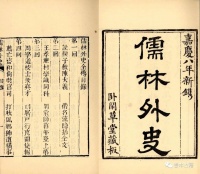 嘉慶八年新鐫
儒林外史
臥閑草堂藏板
儒林外史全傳目錄
第一回
說楔子敷陳大義 借名流隱括全文
第二回
王孝廉村學識同科 周蒙師暮年登上第
第三回
周學道校士拔真才 胡屠戶行兇鬧捷報
第四回
薦亡齋和尚 打秋風鄉紳遭橫事